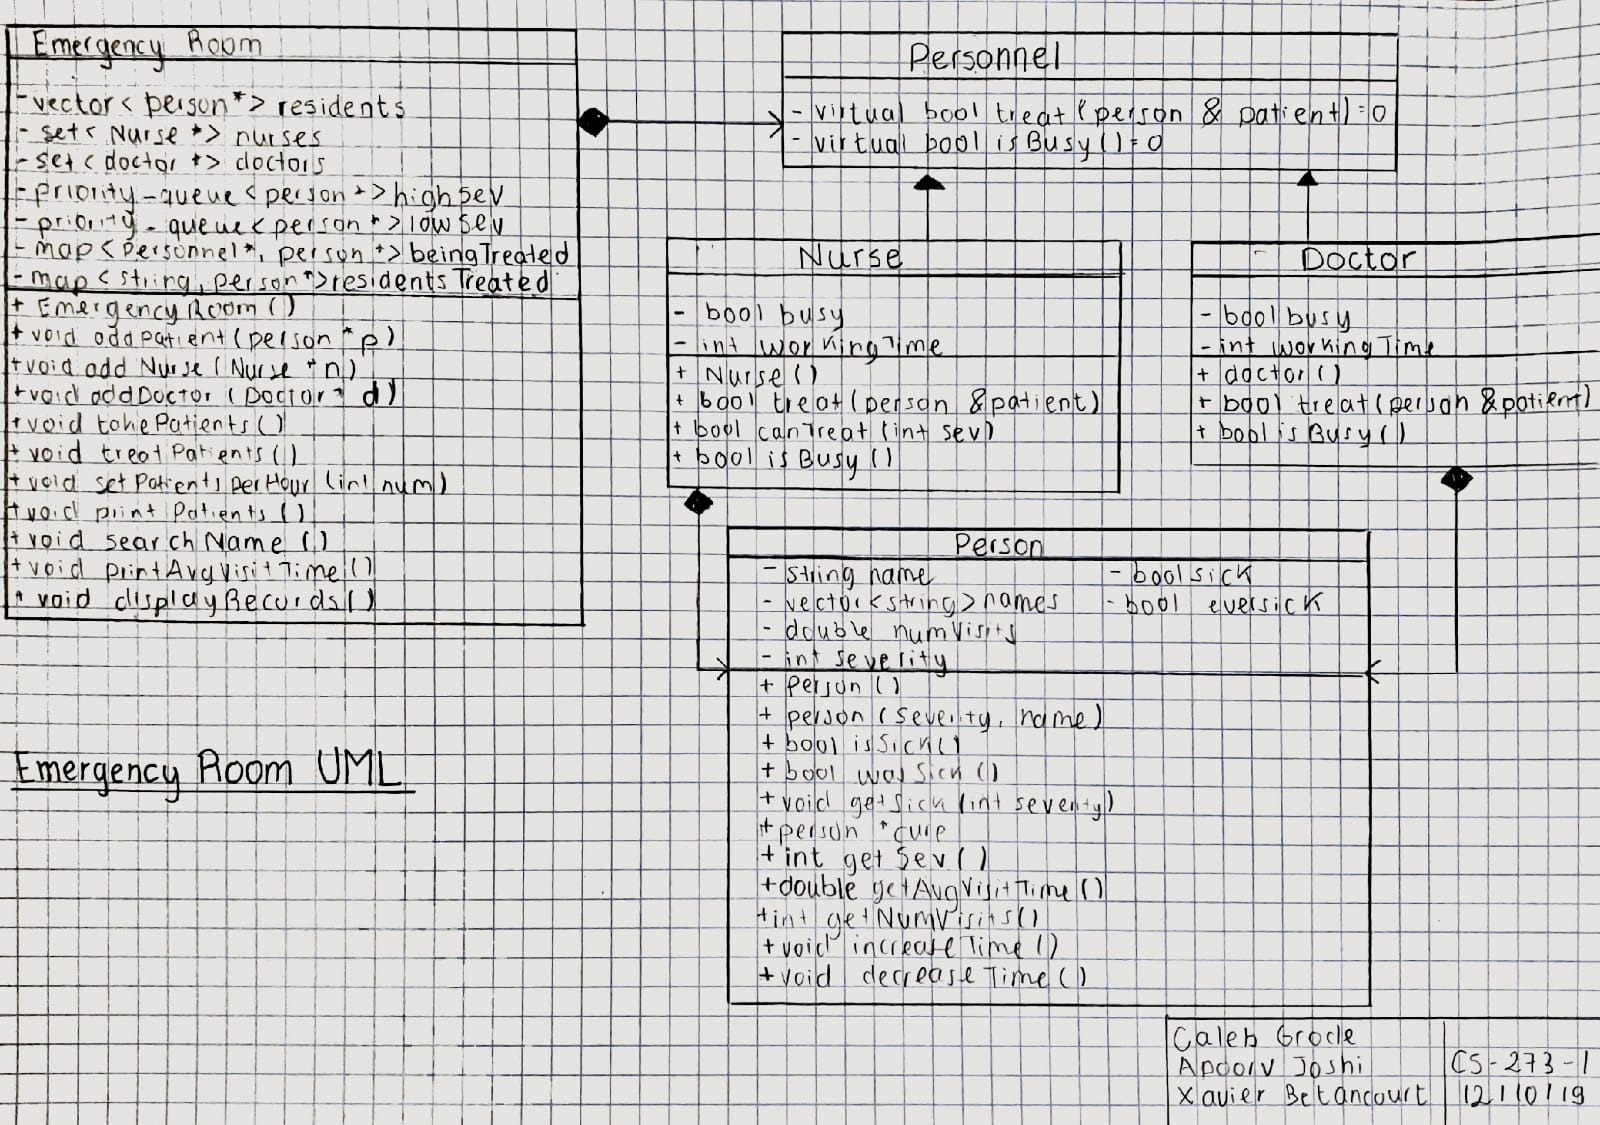 Emergency Room
- vector< person*> residents
- set< Nurse *> nurses
- set< doctor *> doctors
- priority_queue < person *> highSev
- priority_queue < person *> lowSev
- map < Personnel*, person *> beingTreated
- map < string, person *> residentsTreated
+ EmergencyRoom()
+ void addPatient(person * p)
+ void add Nurse (Nurse *n)
+ void addDoctor (Doctor * d)
+ void takePatients()
+ void treatPatients()
+ void setPatientsperHour (int num)
+ void print Patients ()
+ void searchName ()
+ void printAvgVisitTime()
+ void displayRecords()
Personnel
- virtual bool treat (person & patient) = 0
- virtual bool isBusy () = 0
Nurse
- bool busy
- int workingTime
+ Nurse ()
+ bool treat (person & patient)
+ bool canTreat (int sev)
+ bool isBusy ()
Doctor
- bool busy
- int workingTime
+ doctor ()
+ bool treat (person & patient)
+ bool isBusy ()
Person
- string name
- vector<string> names
- double numVisits
- int severity
- bool sick
- bool eversick
+ Person ()
+ person (severity, name)
+ bool isSick()
+ bool wasSick ()
+ void getSick (int severity)
+ person *cure
+ int getSev ()
+ double getAvgVisitTime ()
+ int getNumVisits()
+ void increaseTime ()
+ void decreaseTime ()
Emergency Room UML
Caleb Grode
Apoorv Joshi
Xavier Betancourt
CS-273-1
12/10/19